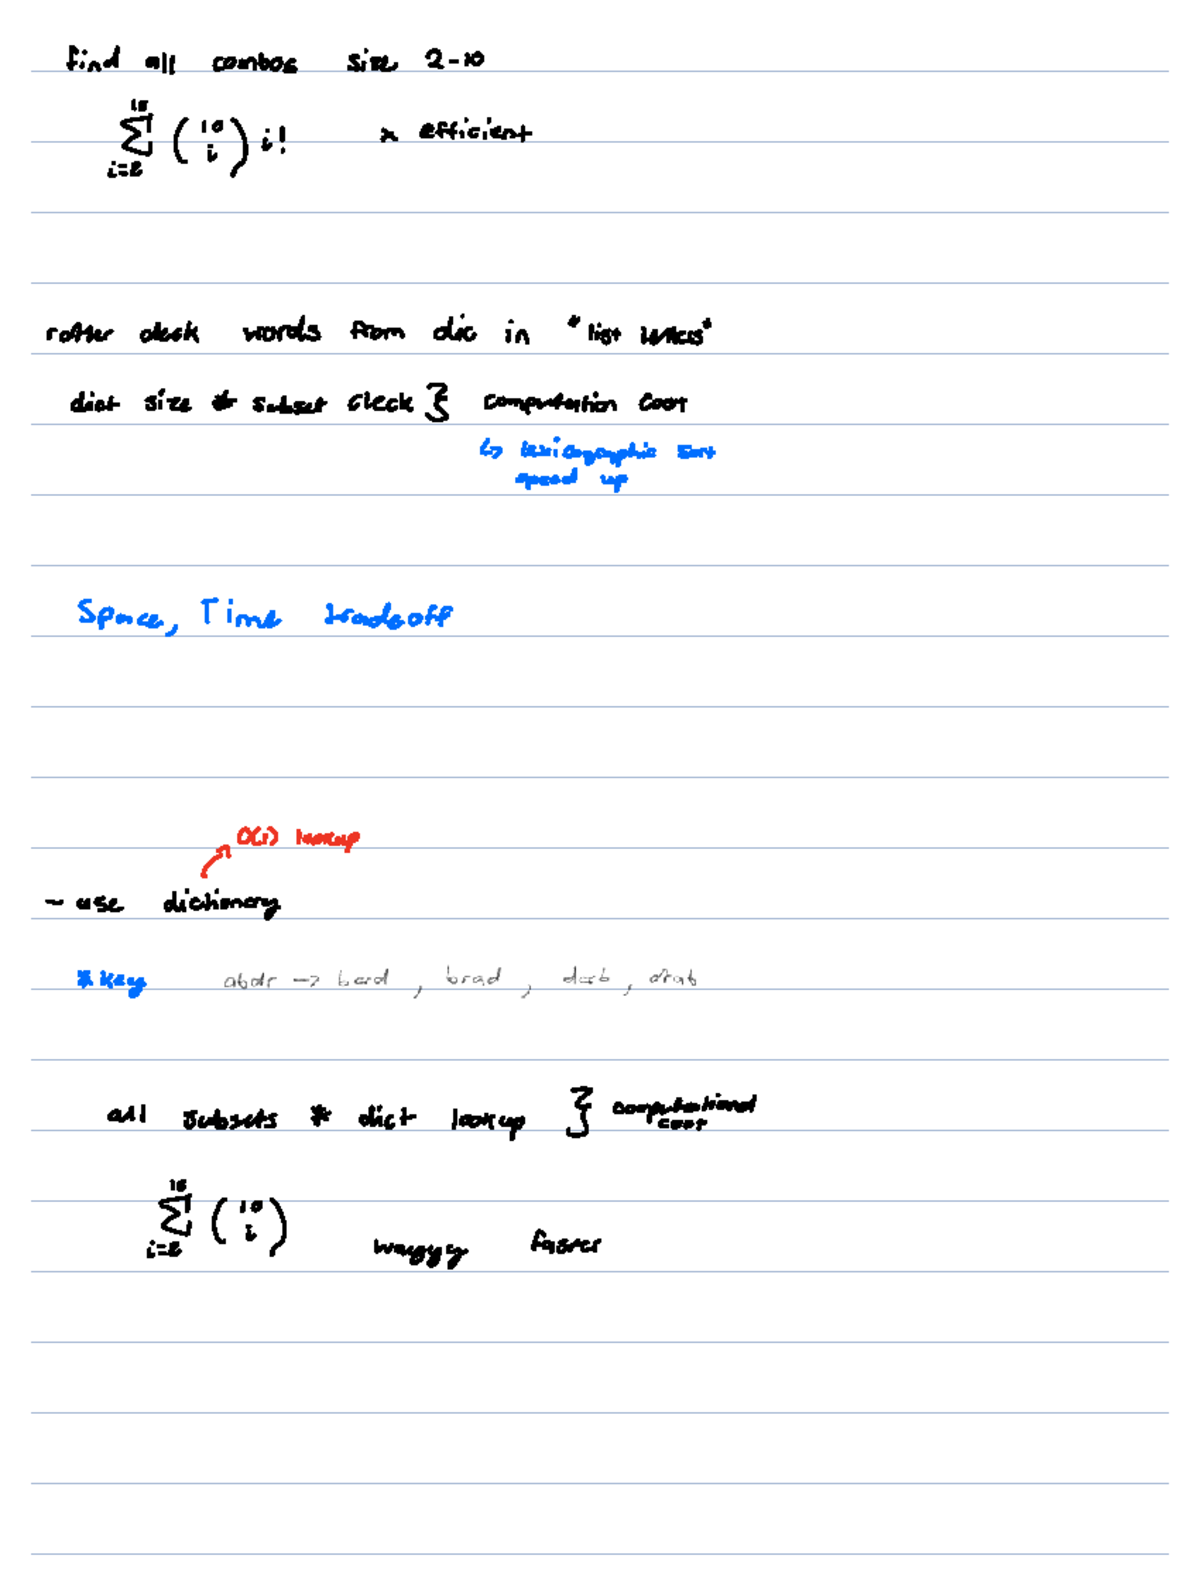 find all combos size 2-10
10
Σ (10 i) i! x efficient
i=2
rather check words from dic in "list letters"
dict size * subset check } computation cost
↳ lexicographic sort
speed up
Space, Time tradeoff
O(1) lookup
- use dictionary
* key abdr -> bard, brad, darb, drab
all subsets * dict lookup } computational
cost
10
Σ (10 i)
i=2 wayyyy faster